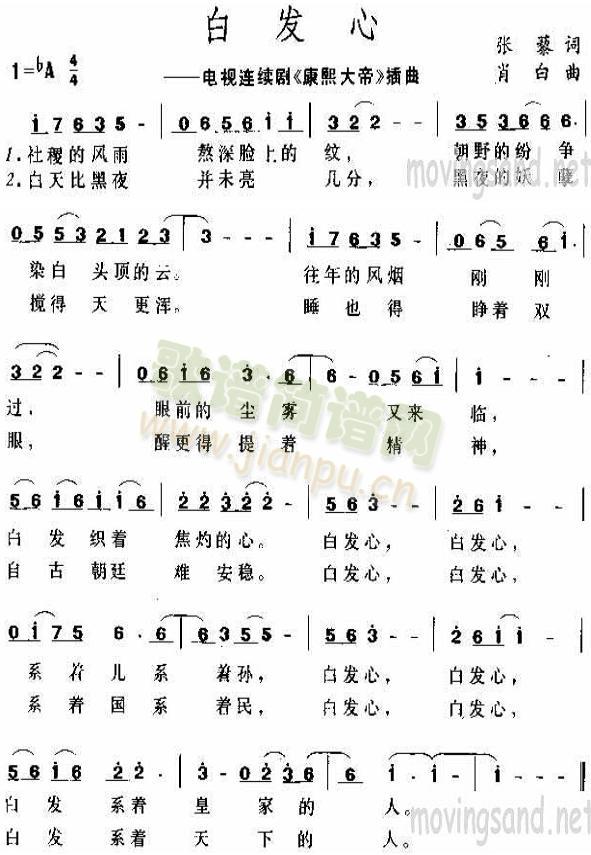 白发心
张藜词
1=♭A 4/4 ——电视连续剧《康熙大帝》插曲 肖白曲
i 7 6 3 5 - | 0 6 5 6 i i | 3 2 2 - - | 3 5 3 6 6 6.
1.社稷的风雨 熬深脸上的纹， 朝野的纷争
2.白天比黑夜 并未亮 几分， 黑夜的妖孽
movingsand.net
0 5 5 3 2 1 2 2 3 | 3 - - - | i 7 6 3 5 - | 0 6 5 6 i. |
染白 头顶的云。 往年的风烟 刚 刚
搅得 天更浑。 睡也得 睁着双
3 2 2 - - | 0 6 i 6 3. 6 | 6 - 0 5 6 i | i - - |
过， 眼前的尘雾 又来临，
眼， 醒更得提着 精 神，
歌谱简谱网
www.jianpu.cn
5 6 i 6 i i 6 | 2 2 3 2 2 - | 5 6 3 - - | 2 6 i - - |
白发织着 焦灼的心。 白发心， 白发心，
自古朝廷 难安稳。 白发心， 白发心，
0 i 7 5 6. 6 | 6 3 5 5 - | 5 6 3 - | 2 6 i i - |
系着儿系 着孙， 白发心， 白发心，
系着国系 着民， 白发心， 白发心，
5 6 i 6 2 2. | 3 - 0 2 3 6 | i - - - | i - i - |
白发 系着 皇 家的 人。
白发 系着 天 下的 人。
movingsand.net